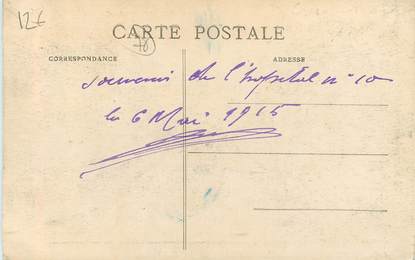 12€
CARTE POSTALE
78
CORRESPONDANCE
ADRESSE
Souvenir de l'hopital n° 10
le 6 Mai 1915